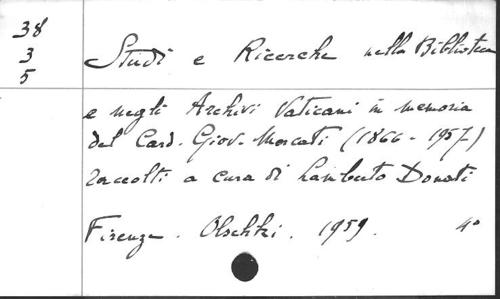 38
3
5
Studi e Ricerche nella Biblioteca
e negli Archivi Vaticani in memoria
del Card. Giov. Mercati (1866 - 1957)
raccolti a cura di Lamberto Donati
Firenze. Olschki. 1959. 4°